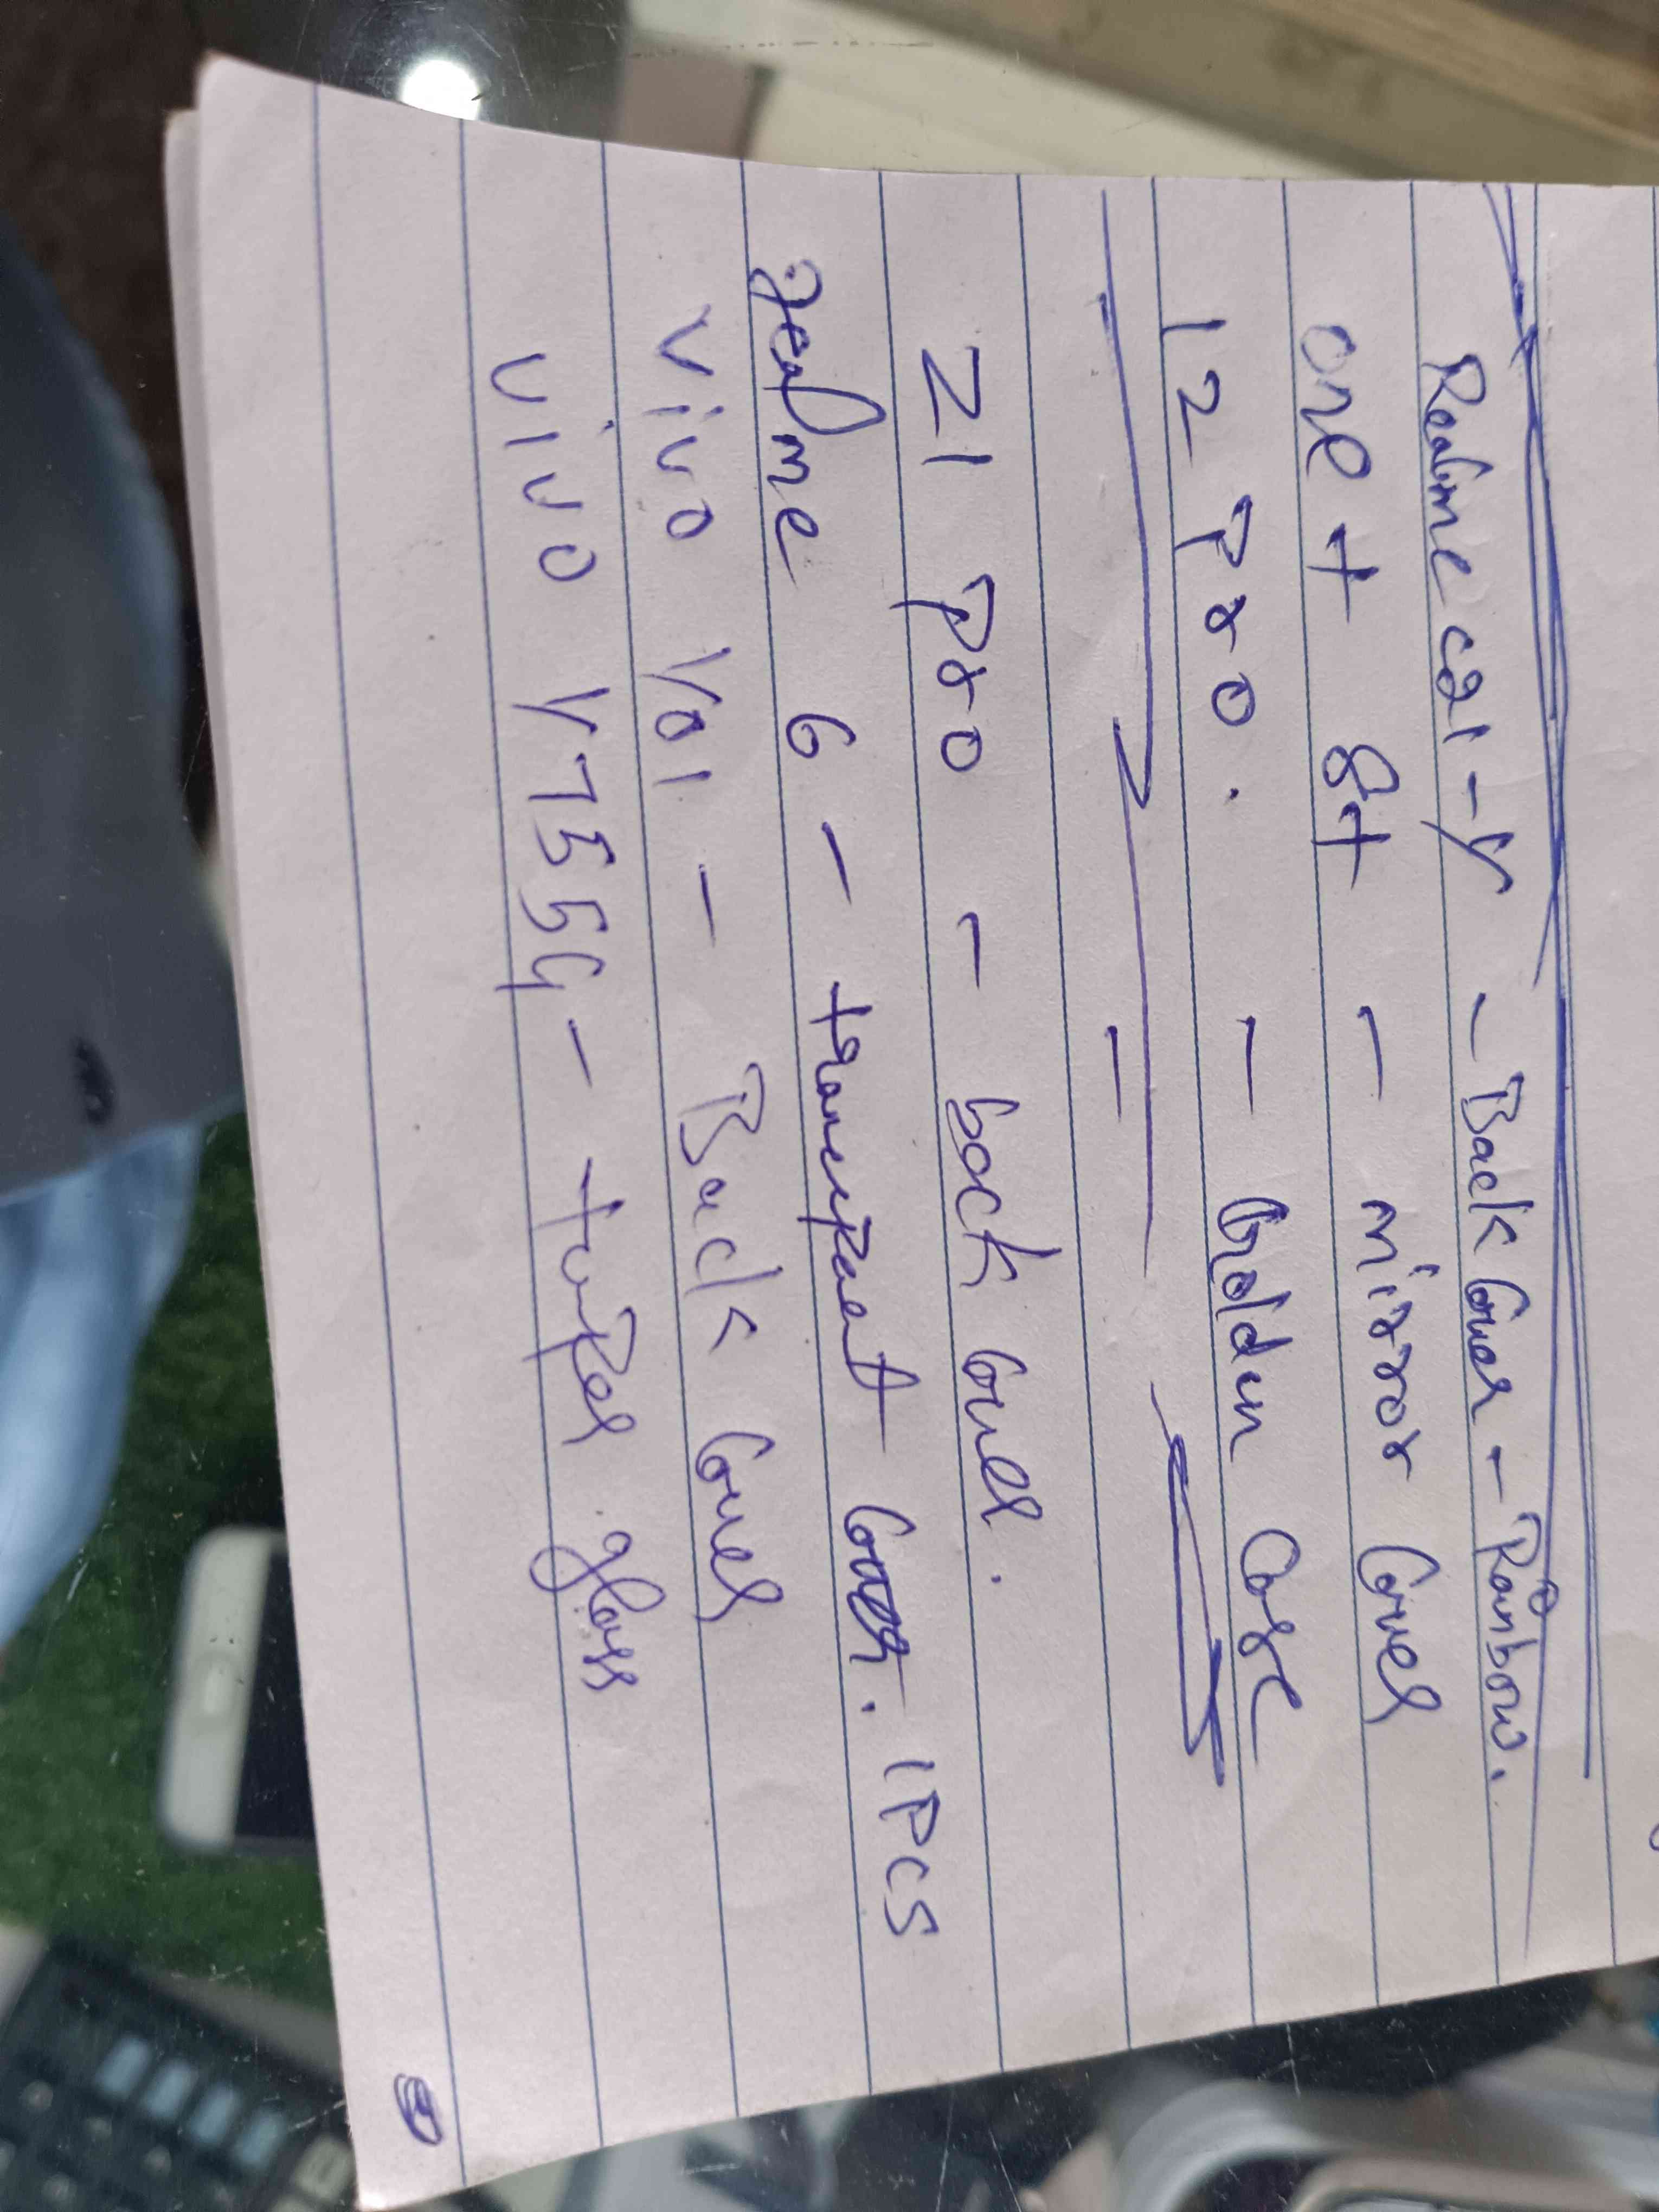 Realme C21-Y - Back Cover - Rainbow.
one + 8t - mirror Cover
12 Pro. - Golden Case
21 Pro - back Cover.
realme 6 - transpaent Cover. 1 PCS
vivo Y01 - Back Cover
vivo Y75 5G - tuper glass